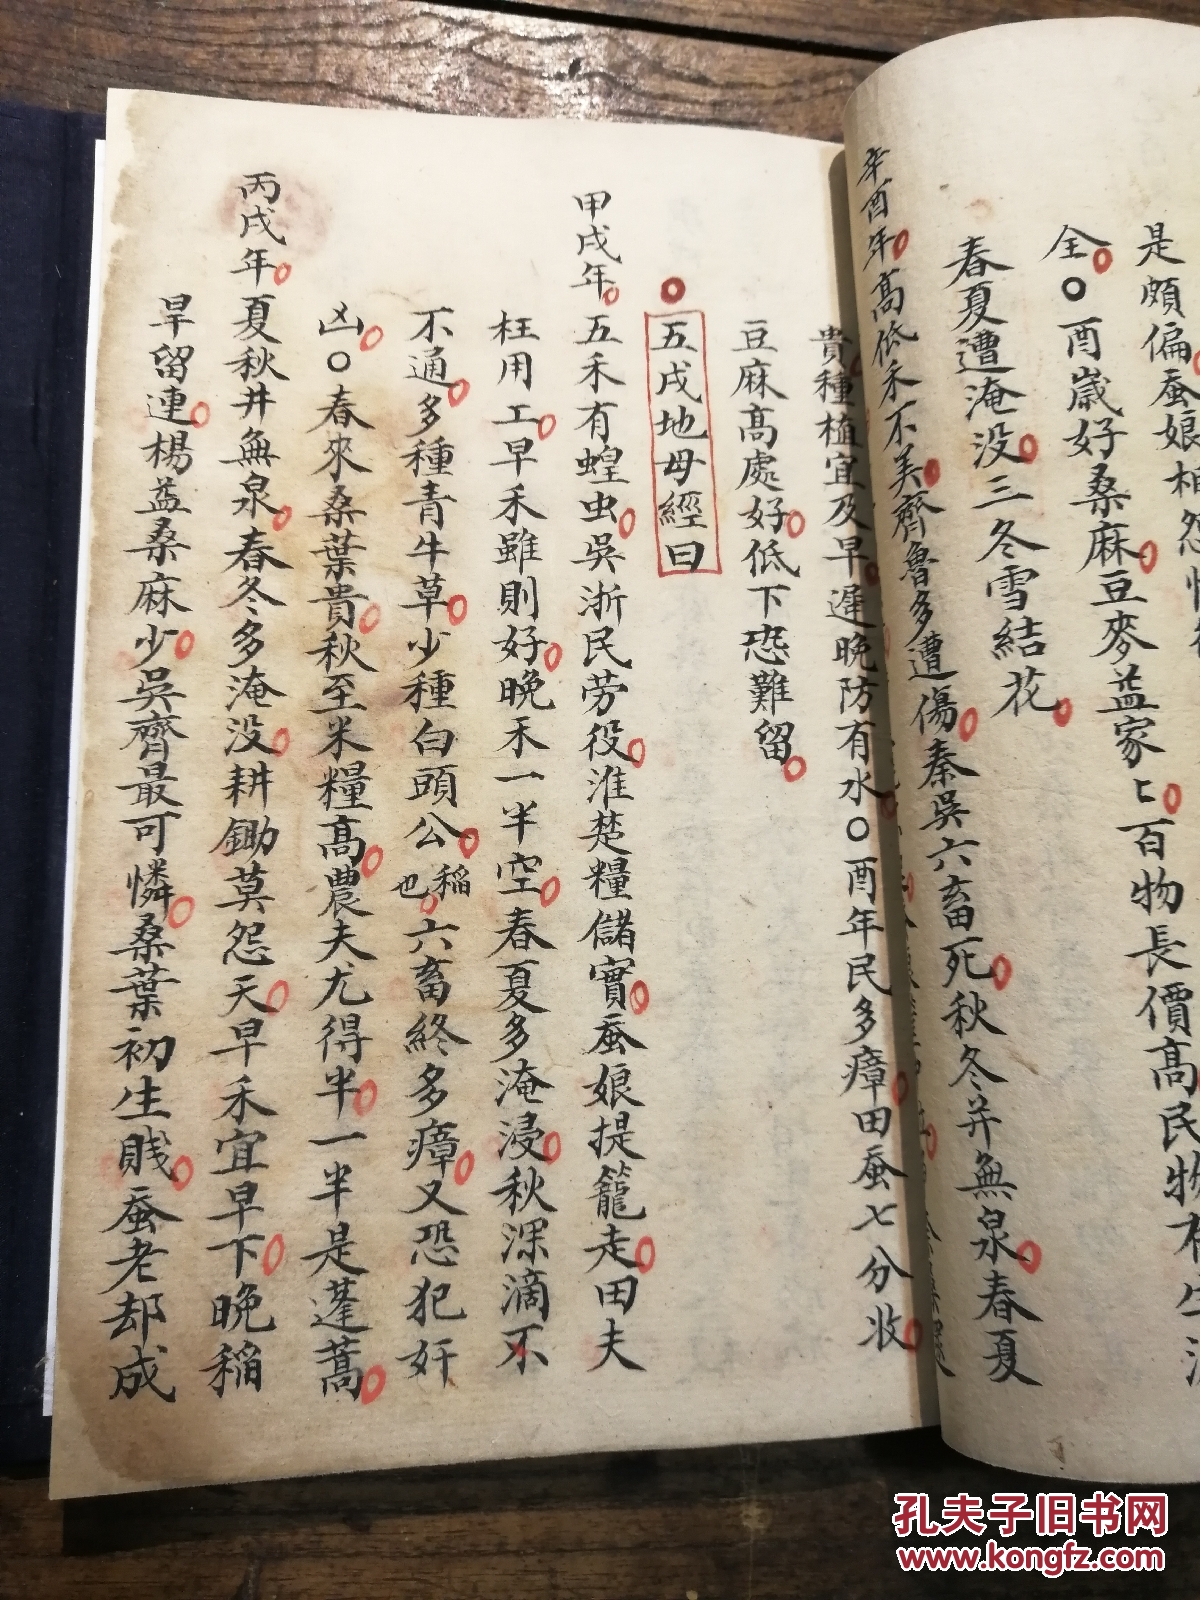 是頗偏蚕娘相怨
全○酉歲好桑麻豆麥益家匕百物長價高民物
春夏遭淹没三冬雪結花
辛酉年高低禾不美齊魯多遭傷秦吳六畜死秋冬井無泉春夏
貴種植宜及早遲晚防有水○酉年民多瘴田蚕七分收
豆麻高處好低下恐難留
五戌地母經曰
甲戌年五禾有蝗虫吳浙民劳役淮楚糧儲實蚕娘提籠走田夫
枉用工早禾雖則好晚禾一半空春夏多淹浸秋深滴不
不通多種青牛草少種白頭公稲也六畜終多瘴又恐犯奸
凶○春來桑葉貴秋至米糧高農夫尤得半一半是蓬蒿
丙戌年夏秋井無泉春冬多淹没耕鋤莫怨天早禾宜早下晚稲
旱留連楊益桑麻少吳齊最可憐桑葉初生賎蚕老却成
孔夫子旧书网
www.kongfz.com